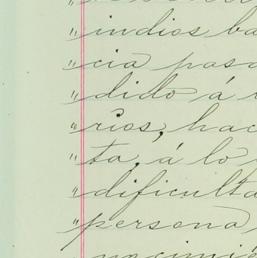 " indios ba
" cia pasa
" dido á
" rios, hac
" ta, á lo
" dificulta
" persona